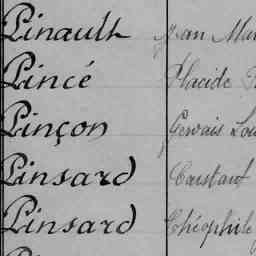 Pinault Jean
Pincé Placide
Pinçon Gervais
Pinsard Constant
Pinsard Théophile